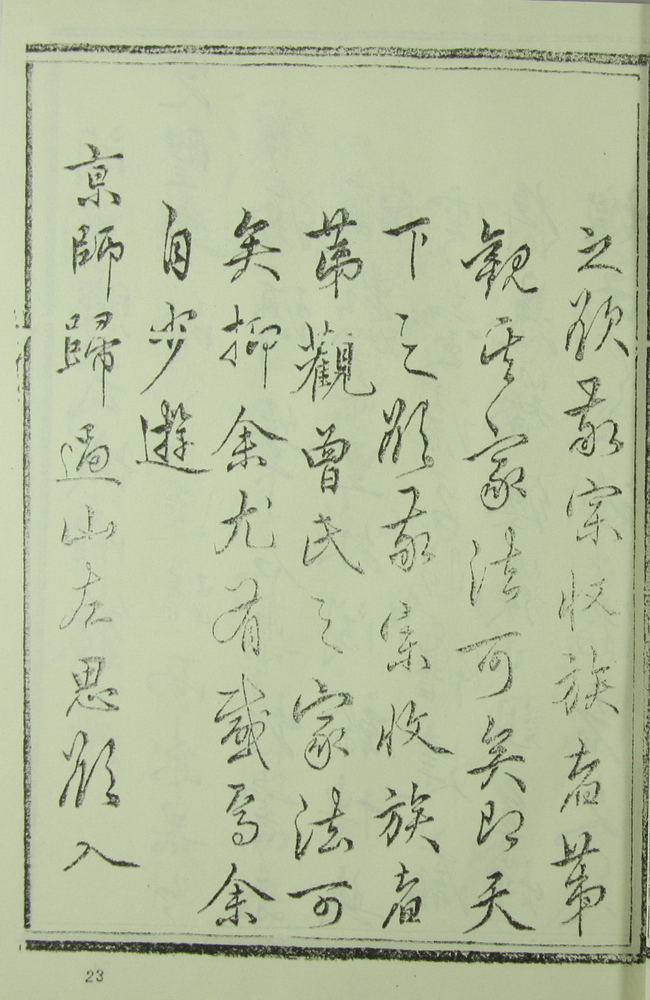 之欲敬宗收族者第
觀其家法可矣即天
下之欲敬宗收族者
第觀曾氏之家法可
矣抑余尤有感焉余
自少遊
京師歸過山左思欲入
23